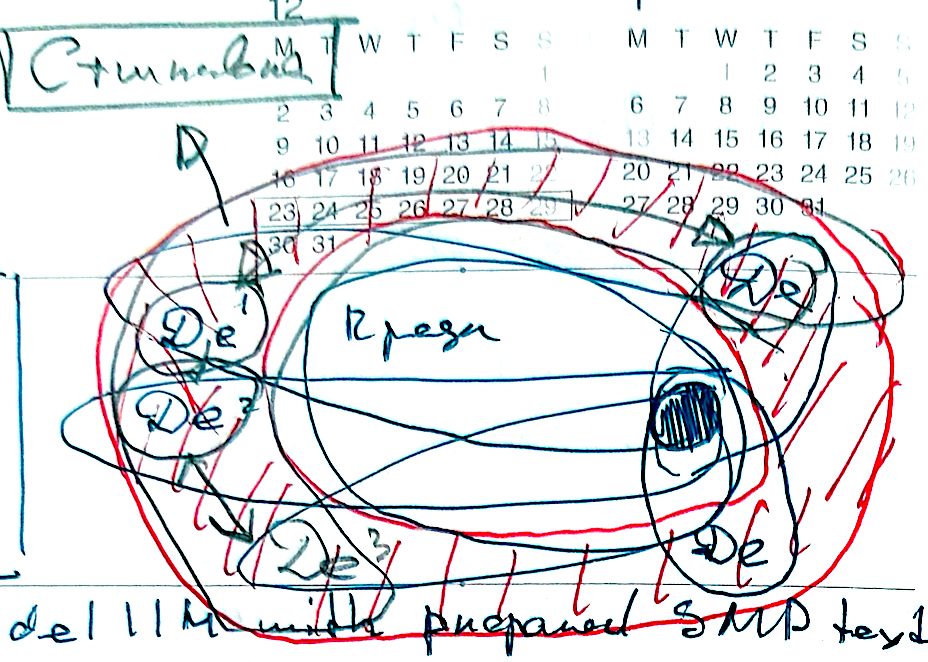 12
M T W T F S S
1
2 3 4 5 6 7 8
9 10 11 12 13 14 15
16 17 18 19 20 21 22
23 24 25 26 27 28 29
30 31
M T W T F S S
1 2 3 4 5
6 7 8 9 10 11 12
13 14 15 16 17 18 19
20 21 22 23 24 25 26
27 28 29 30 31
De
De 1
De 2
De 3
De
del llM with prepared SMP text